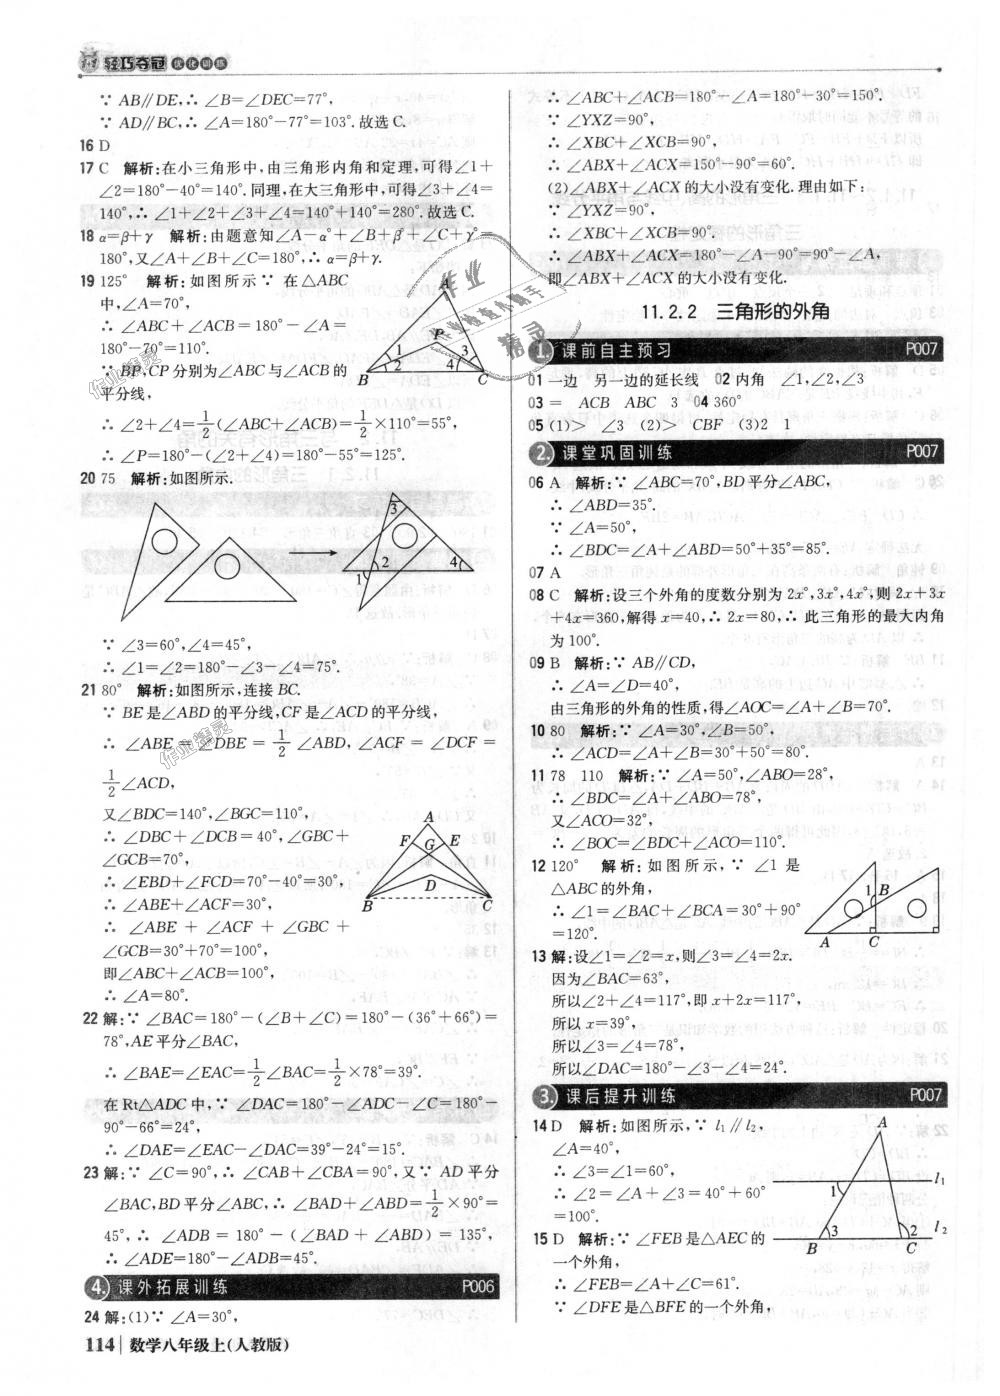 轻巧夺冠 优化训练
∵ AB∥DE,∴ ∠B=∠DEC=77°,
∵ AD∥BC,∴ ∠A=180°-77°=103°.故选 C.
16 D
17 C 解析:在小三角形中,由三角形内角和定理,可得∠1+
∠2=180°-40°=140°.同理,在大三角形中,可得∠3+∠4=
140°,∴ ∠1+∠2+∠3+∠4=140°+140°=280°.故选 C.
18 α=β+γ 解析:由题意知∠A-α°+∠B+β°+∠C+γ°=
180°,又∠A+∠B+∠C=180°,∴ α=β+γ.
19 125° 解析:如图所示 ∵ 在△ABC
中,∠A=70°,
∴ ∠ABC+∠ACB=180°-∠A=
180°-70°=110°.
∵ BP,CP 分别为∠ABC 与∠ACB 的
平分线,
∴ ∠2+∠4=1/2(∠ABC+∠ACB)=1/2×110°=55°,
∴ ∠P=180°-(∠2+∠4)=180°-55°=125°.
A
P
1
2
3
4
B
C
20 75 解析:如图所示.
3
1
2
4
∵ ∠3=60°,∠4=45°,
∴ ∠1=∠2=180°-∠3-∠4=75°.
21 80° 解析:如图所示,连接 BC.
∵ BE 是∠ABD 的平分线,CF 是∠ACD 的平分线,
∴ ∠ABE=∠DBE=1/2∠ABD,∠ACF=∠DCF=
1/2∠ACD,
又∠BDC=140°,∠BGC=110°,
∴ ∠DBC+∠DCB=40°,∠GBC+
∠GCB=70°,
∴ ∠EBD+∠FCD=70°-40°=30°,
∴ ∠ABE+∠ACF=30°,
∴ ∠ABE+∠ACF+∠GBC+
∠GCB=30°+70°=100°,
即∠ABC+∠ACB=100°,
∴ ∠A=80°.
A
F
G
E
D
B
C
22 解:∵ ∠BAC=180°-(∠B+∠C)=180°-(36°+66°)=
78°,AE 平分∠BAC,
∴ ∠BAE=∠EAC=1/2∠BAC=1/2×78°=39°.
在 Rt△ADC 中,∵ ∠DAC=180°-∠ADC-∠C=180°-
90°-66°=24°,
∴ ∠DAE=∠EAC-∠DAC=39°-24°=15°.
23 解:∵ ∠C=90°,∴ ∠CAB+∠CBA=90°,又∵ AD 平分
∠BAC,BD 平分∠ABC,∴ ∠BAD+∠ABD=1/2×90°=
45°,∴ ∠ADB=180°-(∠BAD+∠ABD)=135°,
∴ ∠ADE=180°-∠ADB=45°.
4. 课外拓展训练 P006
24 解:(1)∵ ∠A=30°,
114 数学八年级上(人教版)
∴ ∠ABC+∠ACB=180°-∠A=180°-30°=150°.
∵ ∠YXZ=90°,
∴ ∠XBC+∠XCB=90°,
∴ ∠ABX+∠ACX=150°-90°=60°.
(2)∠ABX+∠ACX 的大小没有变化.理由如下:
∵ ∠YXZ=90°,
∴ ∠XBC+∠XCB=90°,
∴ ∠ABX+∠ACX=180°-∠A-90°=90°-∠A,
即∠ABX+∠ACX 的大小没有变化.
11.2.2 三角形的外角
1. 课前自主预习 P007
01 一边 另一边的延长线 02 内角 ∠1,∠2,∠3
03 = ACB ABC 3 04 360°
05 (1)> ∠3 (2)> CBF (3)2 1
2. 课堂巩固训练 P007
06 A 解析:∵ ∠ABC=70°,BD 平分∠ABC,
∴ ∠ABD=35°.
∵ ∠A=50°,
∴ ∠BDC=∠A+∠ABD=50°+35°=85°.
07 A
08 C 解析:设三个外角的度数分别为 2x°,3x°,4x°,则 2x+3x
+4x=360,解得 x=40,∴ 2x=80,∴ 此三角形的最大内角
为 100°.
09 B 解析:∵ AB∥CD,
∴ ∠A=∠D=40°,
由三角形的外角的性质,得∠AOC=∠A+∠B=70°.
10 80 解析:∵ ∠A=30°,∠B=50°,
∴ ∠ACD=∠A+∠B=30°+50°=80°.
11 78 110 解析:∵ ∠A=50°,∠ABO=28°,
∴ ∠BDC=∠A+∠ABO=78°,
又∠ACO=32°,
∴ ∠BOC=∠BDC+∠ACO=110°.
12 120° 解析:如图所示,∵ ∠1 是
△ABC 的外角,
∴ ∠1=∠BAC+∠BCA=30°+90°
=120°.
1
B
A
C
13 解:设∠1=∠2=x,则∠3=∠4=2x.
因为∠BAC=63°,
所以∠2+∠4=117°,即 x+2x=117°,
所以 x=39°,
所以∠3=∠4=78°,
所以∠DAC=180°-∠3-∠4=24°.
3. 课后提升训练 P007
14 D 解析:如图所示,∵ l₁∥l₂,
∠A=40°,
∴ ∠3=∠1=60°,
∴ ∠2=∠A+∠3=40°+60°
=100°.
A
l₁
1
3
2
l₂
B
C
15 D 解析:∵ ∠FEB 是△AEC 的
一个外角,
∴ ∠FEB=∠A+∠C=61°,
∵ ∠DFE 是△BFE 的一个外角,